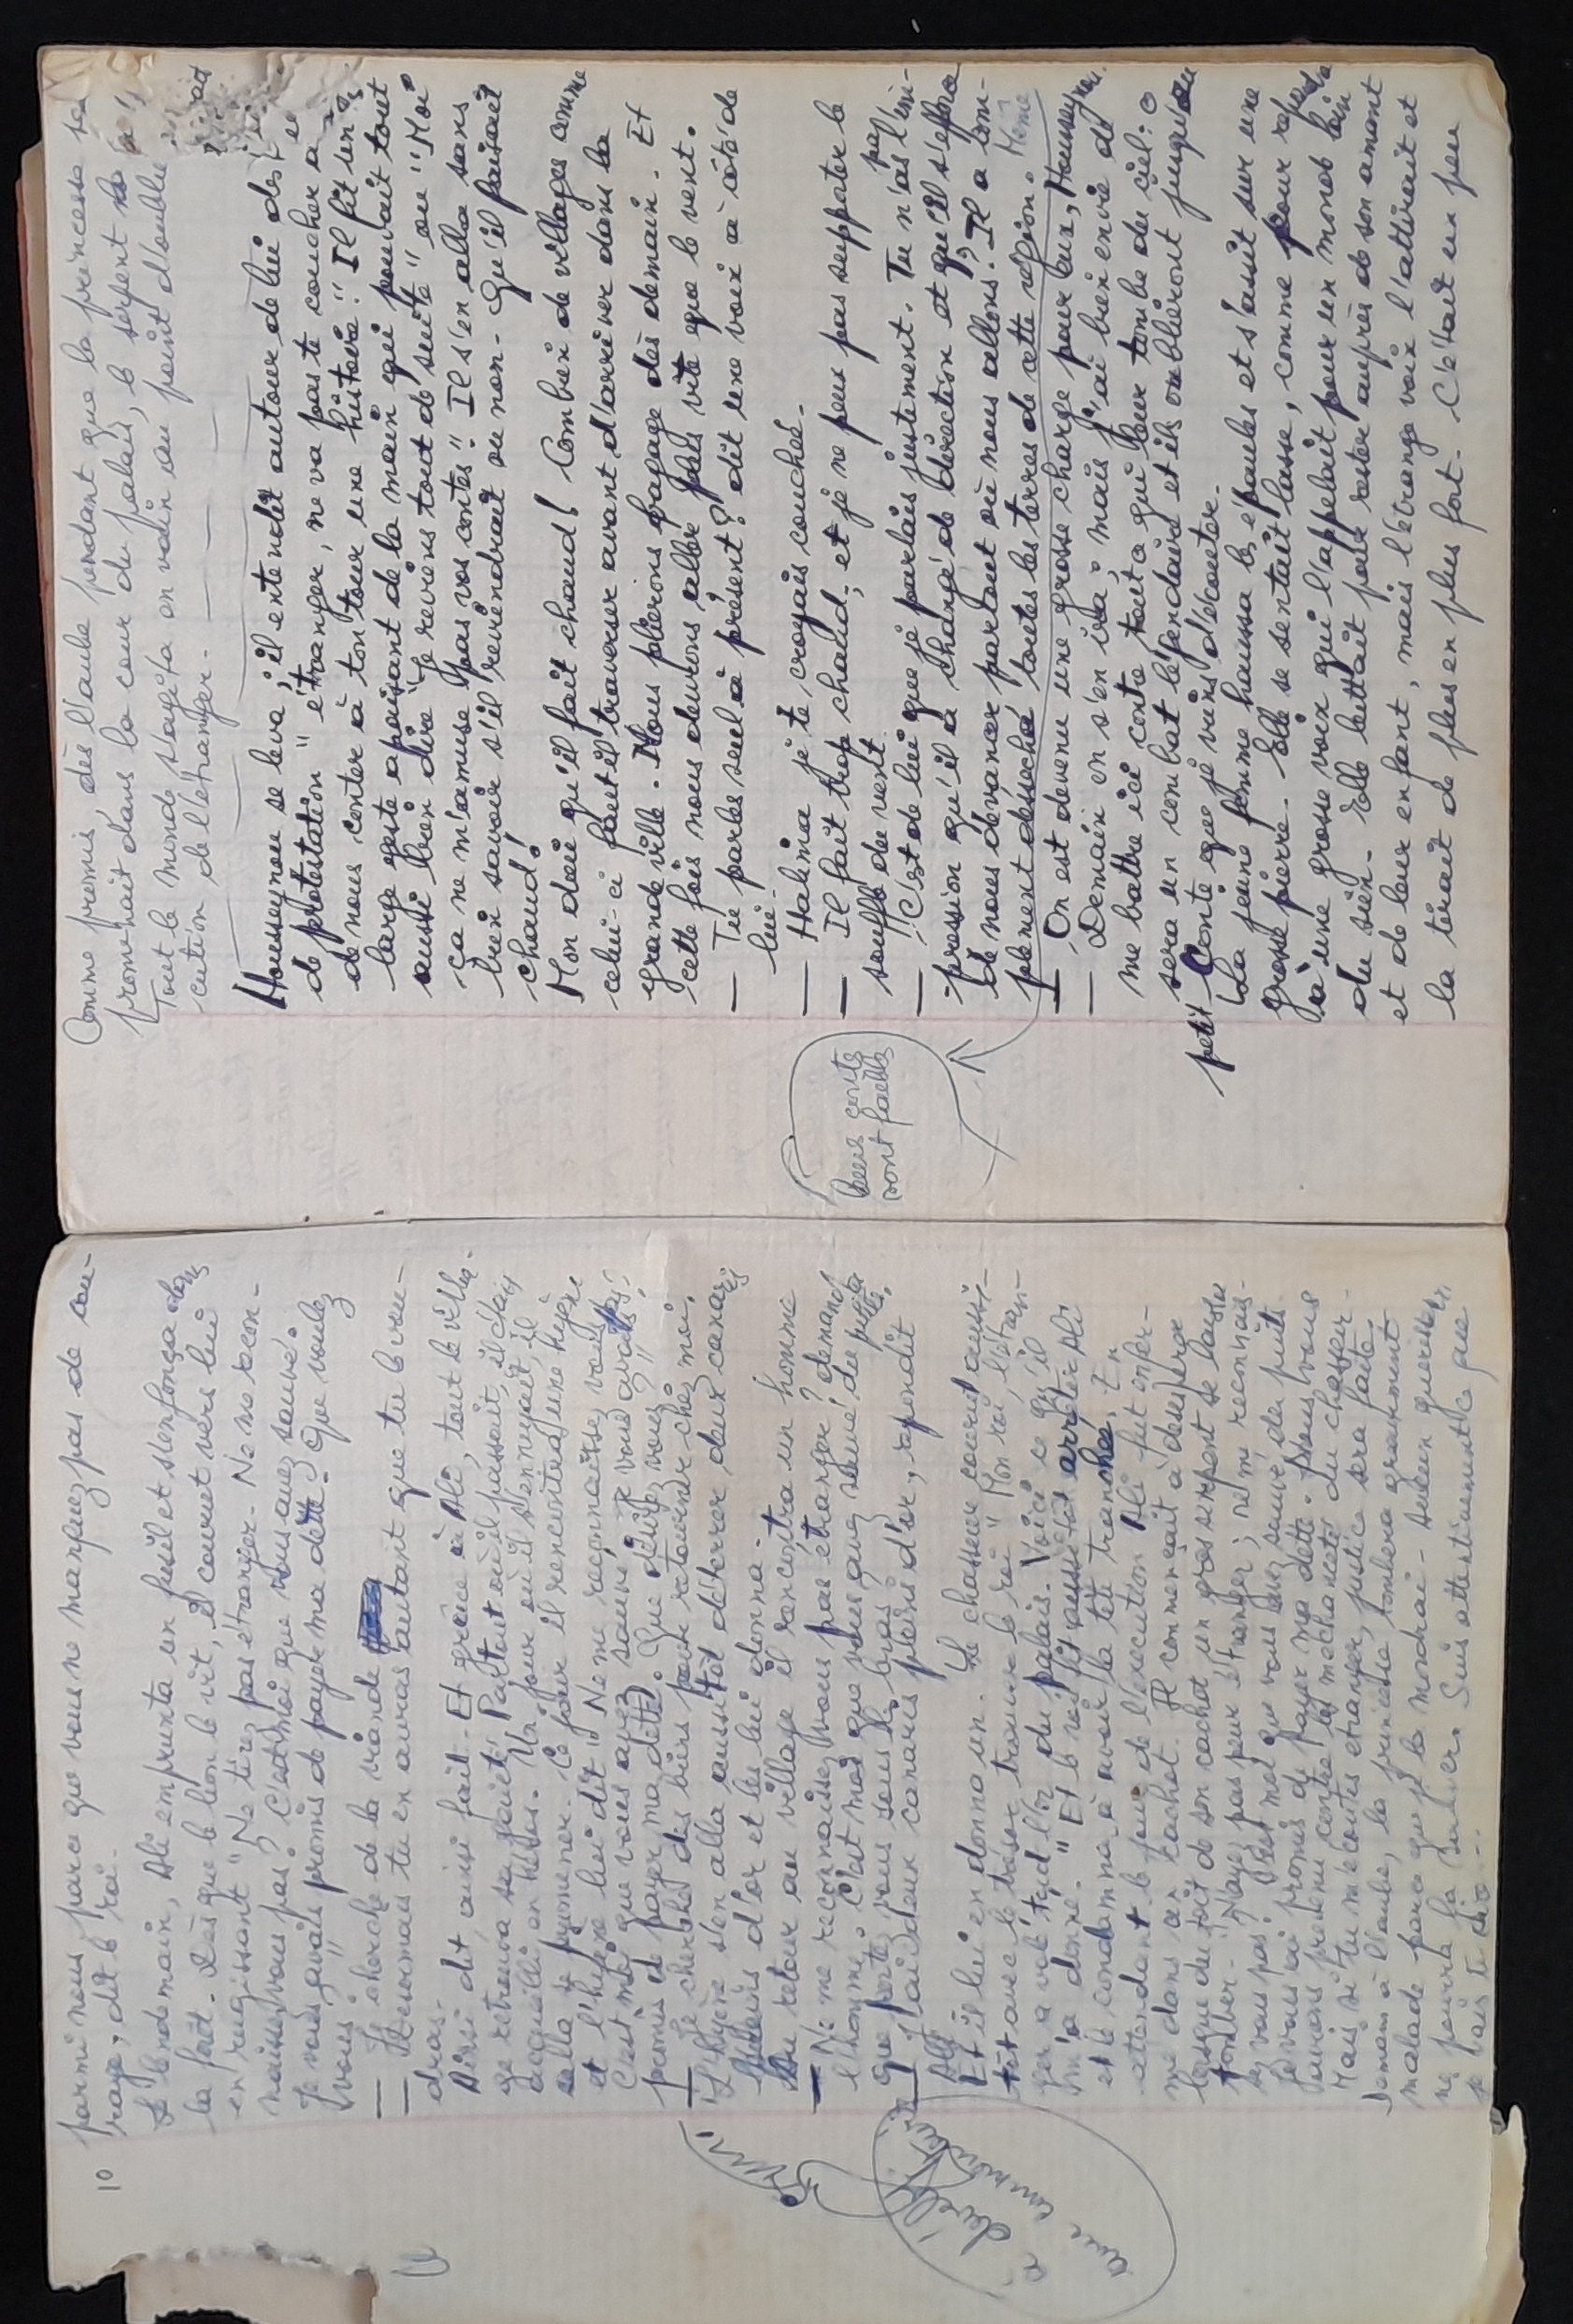 10
parmi nous parce que vous ne manquez pas de cou-
rage, dit le roi.
Le lendemain, Ali emprunta un fusil et s'enfonça dans
la forêt. Dès que le lion le vit, il courut vers lui
en rugissant " Ne tirez pas étranger. Ne me recon-
naissez vous pas? C'est moi que vous avez sauvé.
Je vous avais promis de payer ma dette. Que voulez
vous?"
— Je cherche de la viande
— Désormais tu en auras autant que tu le vou-
dras.
Ainsi dit, ainsi fait. Et grâce à Ali, tout le villa-
ge retrouva sa gaieté. Partout où il passait, il était
accueilli en héros. Un jour où il s'ennuyait, il
alla se promener. Ce jour il rencontra une hyène
et l'hyène lui dit " Ne me reconnaissez vous pas?
C'est moi que vous avez sauvé. Je vous avais
promis de payer ma dette. Que désirez vous?"
— Je cherche des biens pour retourner chez moi.
L'hyène s'en alla aussitôt déterrer deux canaris
d'or et les lui donna.
Au retour au village il rencontra un homme
— Ne me reconnaissez vous pas étranger? demanda
l'homme. C'est moi que vous avez sauvé du puits.
Que portez vous sous les bras?
— J'ai deux canaris pleins d'or, répondit
Ali
Et il lui en donna un. Le chasseur courut aussi-
tôt avec le trésor trouver le roi " Mon roi, l'étran-
ger a volé tout l'or du palais. Voici ce qu'il
m'a donné." Et le roi fit aussitôt arrêter Ali
et le condamna à avoir la tête tranchée. En
attendant le jour de l'exécution Ali fut enfer-
mé dans un cachot. Il commençait à désespérer
lorsque du toit de son cachot un gros serpent se laissa
tomber. " N'ayez pas peur étranger; ne me reconnais-
sez vous pas? C'est moi que vous avez sauvé du puits.
Je vous ai promis de payer ma dette. Nous vous
avions prévenu contre la méchanceté du chasseur.
Mais si tu m'écoutes étranger, justice sera faite.
Demain à l'aube, la princesse tombera gravement
malade parce que je la mordrai. Aucun guérisseur
ne pourra la Suis attentivement ce que
je vais te dire...
à
Comme promis, dès l'aube pendant que la princesse se
promenait dans la cour du palais, le serpent la
Tout le monde s'agita en vain au point d'oublier
cution de l'étranger.
Housseynou se leva; il entendit autour de lui des
de protestation " étranger, ne va pas te coucher
de nous conter à ton tour une histoire." Il fit un
large geste apaisant de la main qui pouvait tout
aussi bien dire "Je reviens tout de suite" ou "Moi
ça ne m'amuse pas vos contes." Il s'en alla sans
bien savoir s'il reviendrait ou non. Qu'il faisait
chaud!
Mon dieu qu'il fait chaud! Combien de villages comme
celui-ci faut il traverser avant d'arriver dans la
grande ville. Nous plierons bagage dès demain. Et
cette fois nous devrons aller plus vite que le vent.
— Tu parles seul à présent? dit une voix à côté de
lui.
— Halima je te croyais couchée.
— Il fait trop chaud; et je ne peux pas supporter le
souffle du vent
— C'est de lui que je parlais justement. Tu n'as pas l'im-
pression qu'il a changé de direction et qu'il s'efforce
de nous devancer partout où nous allons? Il a com-
plètement desséché toutes les terres de cette région. Même
leurs contes
sont faibles
— On est devenu une grosse charge pour eux, Housseynou.
— Demain on s'en ira; mais j'ai bien envie de
me battre ici contre tout ce qui leur tombe du ciel. Ce
sera un combat légendaire et ils oublieront jusqu'au
petit conte que je viens d'écouter.
La jeune femme haussa les épaules et s'assit sur une
grosse pierre. Elle se sentait lasse, comme pour répondre
à une grosse voix qui l'appelait pour un monde loin
du sien. Elle luttait pour rester auprès de son amant
et de leur enfant, mais l'étrange voix l'attirait et
la tirait de plus en plus fort. C'était un peu